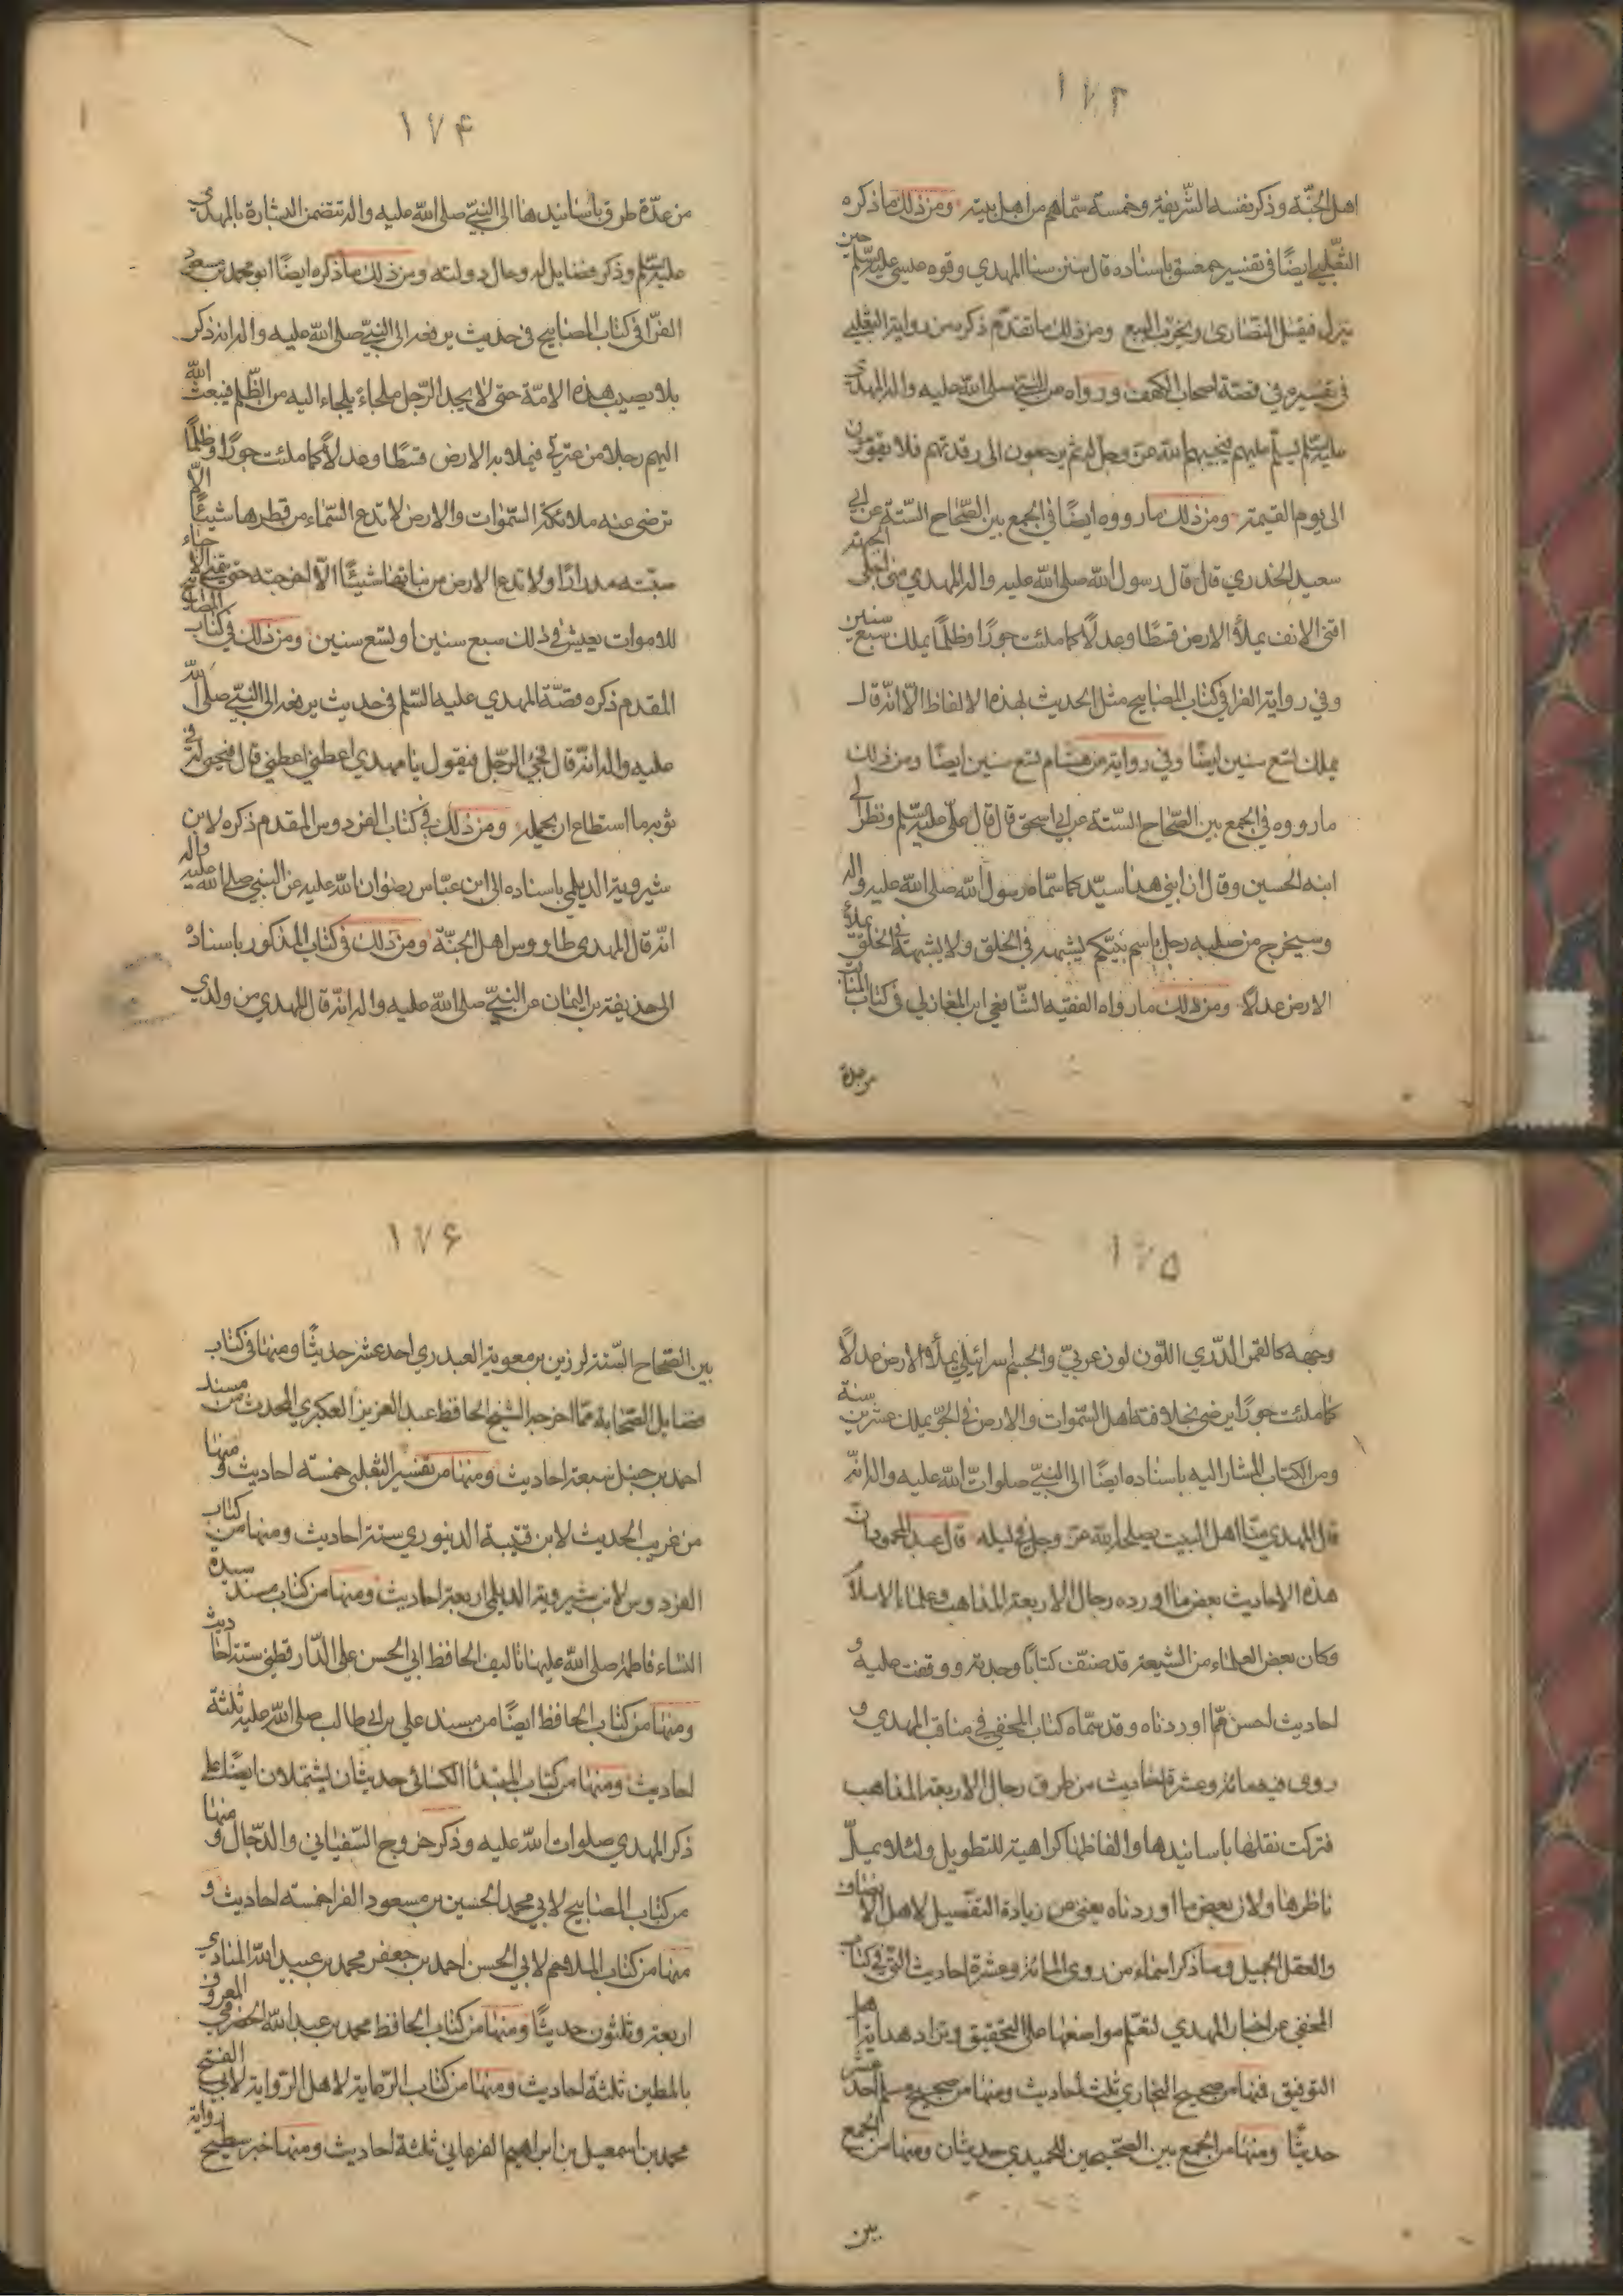 ١٧٣
اهل الجنّة وذكر نفسه الشّريفة وخمسة سمّاهم من اهل بيته ومن ذلك ما ذكره
الثّعلبي ايضًا في تفسير حمعسق باسناده قال س سنا المهدي و ق قوه عيسى عليه السّلم حين
ينزل فيقتل النصارى ويخرّب البيع ومن ذلك ما تقدّم ذكره من رواية الثعلبي
في تفسيره في قصّة اصحاب الكهف ورواه عن النّبيّ صلى الله عليه واله المهدي
عليه السّلم يسلّم عليهم فيحييهم الله عزّ وجلّ له ثم يرجعون الى رقدتهم فلا يقومون
الى يوم القيمة ومن ذلك ما رووه ايضًا في الجمع بين الصّحاح السّتة عن ابي
سعيد الخدري قال قال رسول الله صلى الله عليه واله المهدي منى اجلى الجبهة
اقنى الانف يملأ الارض قسطًا وعدلًا كما ملئت جورًا وظلمًا يملك سبع سنين
وفي رواية الفرا في كتاب المصابيح مثل الحديث بهذه الالفاظ الّا انّه قال
يملك تسع سنين ايضًا وفي رواية من هشام تسع سنين ايضًا ومن ذلك
ما رووه في الجمع بين الصّحاح السّتة عن ابي اسحق قال قال عليّ عليه السّلم ونظر الى
ابنه الحسين وقال ان ابني هذا سيّد كما سمّاه رسول الله صلى الله عليه واله
وسيخرج من صلبه رجل باسم نبيّكم يشبهه في الخلق ولا يشبهه في الخلق يملأ
الارض عدلًا ومن ذلك ما رواه الفقيه الشّافعي ابن المغازلي في كتاب المناقب
من عدة
١٧۴
من عدّة طرق باسانيدها الى النبيّ صلى الله عليه واله تتضمن البشارة بالمهدي
عليه السّلم وذكر فضايله وحال دولته ومن ذلك ما ذكره ايضًا ابو محمد بن مسعود
الفرّا في كتاب المصابيح في حديث يرفعه الى النبيّ صلى الله عليه واله انه ذكر
بلا يصيب هذه الامّة حتى لا يجد الرّجل ملجاء يلجاء اليه من الظّلم فيبعث الله
اليهم رجلا من عترتي فيملا به الارض قسطًا وعدلًا كما ملئت جورًا وظلمًا
ترضى عنه ملائكة السّموات والارض لا تدع السّماء من قطرها شيئًا الّا
صبّته مدرارًا ولا تدع الارض من نباتها شيئًا الّا اخرجته حتى يتمنى الاحياء
للاموات يعيش في ذلك سبع سنين او تسع سنين ومن ذلك في كتاب المصابيح
المقدم ذكره قصّة المهدي عليه السّلم في حديث يرفعه الى النبيّ صلى الله
عليه واله انه قال فيجئ الرّجل فيقول يا مهدي اعطني اعطني قال فيحثى له في
ثوبه ما استطاع ان يحمله ومن ذلك في كتاب الفردوس المقدم ذكره لابن
شيروية الديلمي باسناده الى ابن عبّاس رضوان الله عليه عن النبي صلى الله عليه واله
انه قال المهدي طاووس اهل الجنّة ومن ذلك في كتاب المذكور باسناده
الى حذيفة بن اليمان عن النبيّ صلى الله عليه واله انه قال المهدي من ولدي
١٧۵
وجهه كالقمر الدّري اللّون لون عربيّ والجسم اسرائيلي يملأ الارض عدلًا
كما ملئت جورًا يرضى بخلافته اهل السّموات والارض في الجوّ يملك عشرين سنة
ومن الكتاب المشار اليه باسناده ايضًا الى النبيّ صلوات الله عليه واله انّه
قال المهدي منّا اهل البيت يصلحه الله عزّ وجلّ في ليله قال عبد المحمود ان
هذه الاحاديث بعض ما اورده رجال الاربعة المذاهب وعلماء الاسلام
وكان بعض العلماء من الشيعة قد صنّف كتابًا وجدته ووقفت عليه و
احاديث احسن ممّا اوردناه وقد سمّاه كتاب المخفي في مناقب المهدي و
روى فيه مائة وعشرة احاديث من طرق رجال الاربعة المذاهب
فتركت نقلها باسانيدها والفاظها كراهية للتطويل ولئلا يملّ
ناظرها ولان بعض ما اوردناه يغني عن زيادة التفصيل لاهل الانصاف
والعقل الجميل وساذكر اسماء من روى المائة وعشرة احاديث التي في كتاب
المخفي عن اخبار المهدي لتعلم مواضعها على التحقيق وتزاد هداية اهل
التوفيق فمنها من صحيح البخاري ثلث احاديث ومنها من صحيح مسلم احد عشر
حديثًا ومنها من الجمع بين الصّحيحين للحميدي حديثان ومنها من الجمع
بين
١٧۶
بين الصّحاح السّتة لرزين بن معوية العبدري احد عشر حديثًا ومنها في كتاب
فضايل الصّحابة ممّا اخرجه الشيخ الحافظ عبد العزيز العكبري المحدث من مسند
احمد بن حنبل سبعة احاديث ومنها من تفسير الثعلبي خمسة احاديث ومنها
من غريب الحديث لابن قتيبة الدينوري ستة احاديث ومنها من كتاب
الفردوس لابن شيروية الديلمي اربعة احاديث ومنها من كتاب مسند سيدة
النساء فاطمة صلى الله عليها تاليف الحافظ ابي الحسن علي الدّارقطني ستة احاديث
ومنها من كتاب الحافظ ايضًا من مسند علي بن ابي طالب صلى الله عليه ثلثة
احاديث ومنها من كتاب المبتدا الكسائي حديثان يشتملان ايضًا على
ذكر المهدي صلوات الله عليه وذكر خروج السّفياني والدّجال ومنها
من كتاب المصابيح لابي محمد الحسين بن مسعود الفرا خمسة احاديث و
منها من كتاب الملاحم لابي الحسن احمد بن جعفر محمد بن عبيد الله المنادي
اربعة وثلثون حديثًا ومنها من كتاب الحافظ محمد بن عبد الله الحضرمي المعروف
بالمطين ثلثة احاديث ومنها من كتاب الرّعاية لاهل الرّواية لابي الفتح
محمد بن اسمعيل بن ابراهيم الفرغاني ثلثة احاديث ومنها خبر سطيح رواية